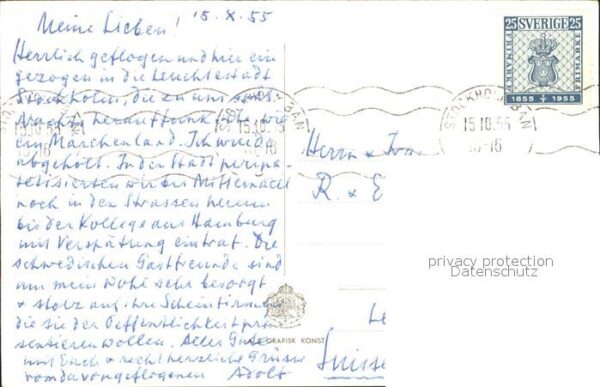 15.X.55
Meine Lieben!
Herrlich geflogen und hier ein
gezogen in die Leuchtestadt
Stockholm, die zu uns
Nachts herauffunkelte wie
ein Märchenland. Ich wurde
abgeholt. In der Stadt peripa-
tetisierten wir bis Mitternacht
noch in den Strassen herum
bis der Kollege aus Hamburg
mit Verspätung eintraf. Die
schwedischen Gastfreunde sind
um mein Wohl sehr besorgt
& stolz auf ihre
die sie der Oeffentlichkeit prä
sentieren wollen. Alles Gute
mit Euch & recht herzliche Grüsse
vom davongeflogenen Adolf
25 SVERIGE 25
FRIMÄRKE FRIMÄRKE
1855 1955
STOCKHOLM BAN
15.10.55
15-16
Herrn & Frau
R. & E
Suisse
GRAFISK KONST
privacy protection
Datenschutz